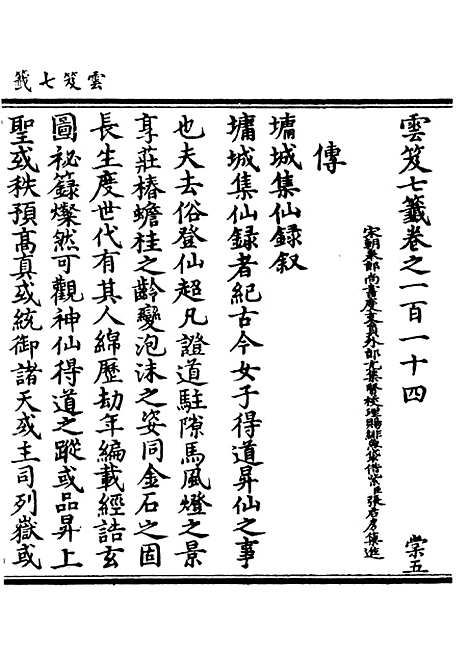 雲笈七籤
雲笈七籤卷之一百一十四
棠五
宋朝奉郎尚書度支員外郎充集賢校理賜緋魚袋借紫臣張君房集進
傳
墉城集仙録叙
墉城集仙録者紀古今女子得道昇仙之事
也夫去俗登仙超凡證道駐隙馬風燈之景
享莊椿蟾桂之齡變泡沫之姿同金石之固
長生度世代有其人綿歷劫年編載經誥玄
圖祕籙燦然可觀神仙得道之蹤或品昇上
聖或秩預高真或統御諸天或主司列嶽或